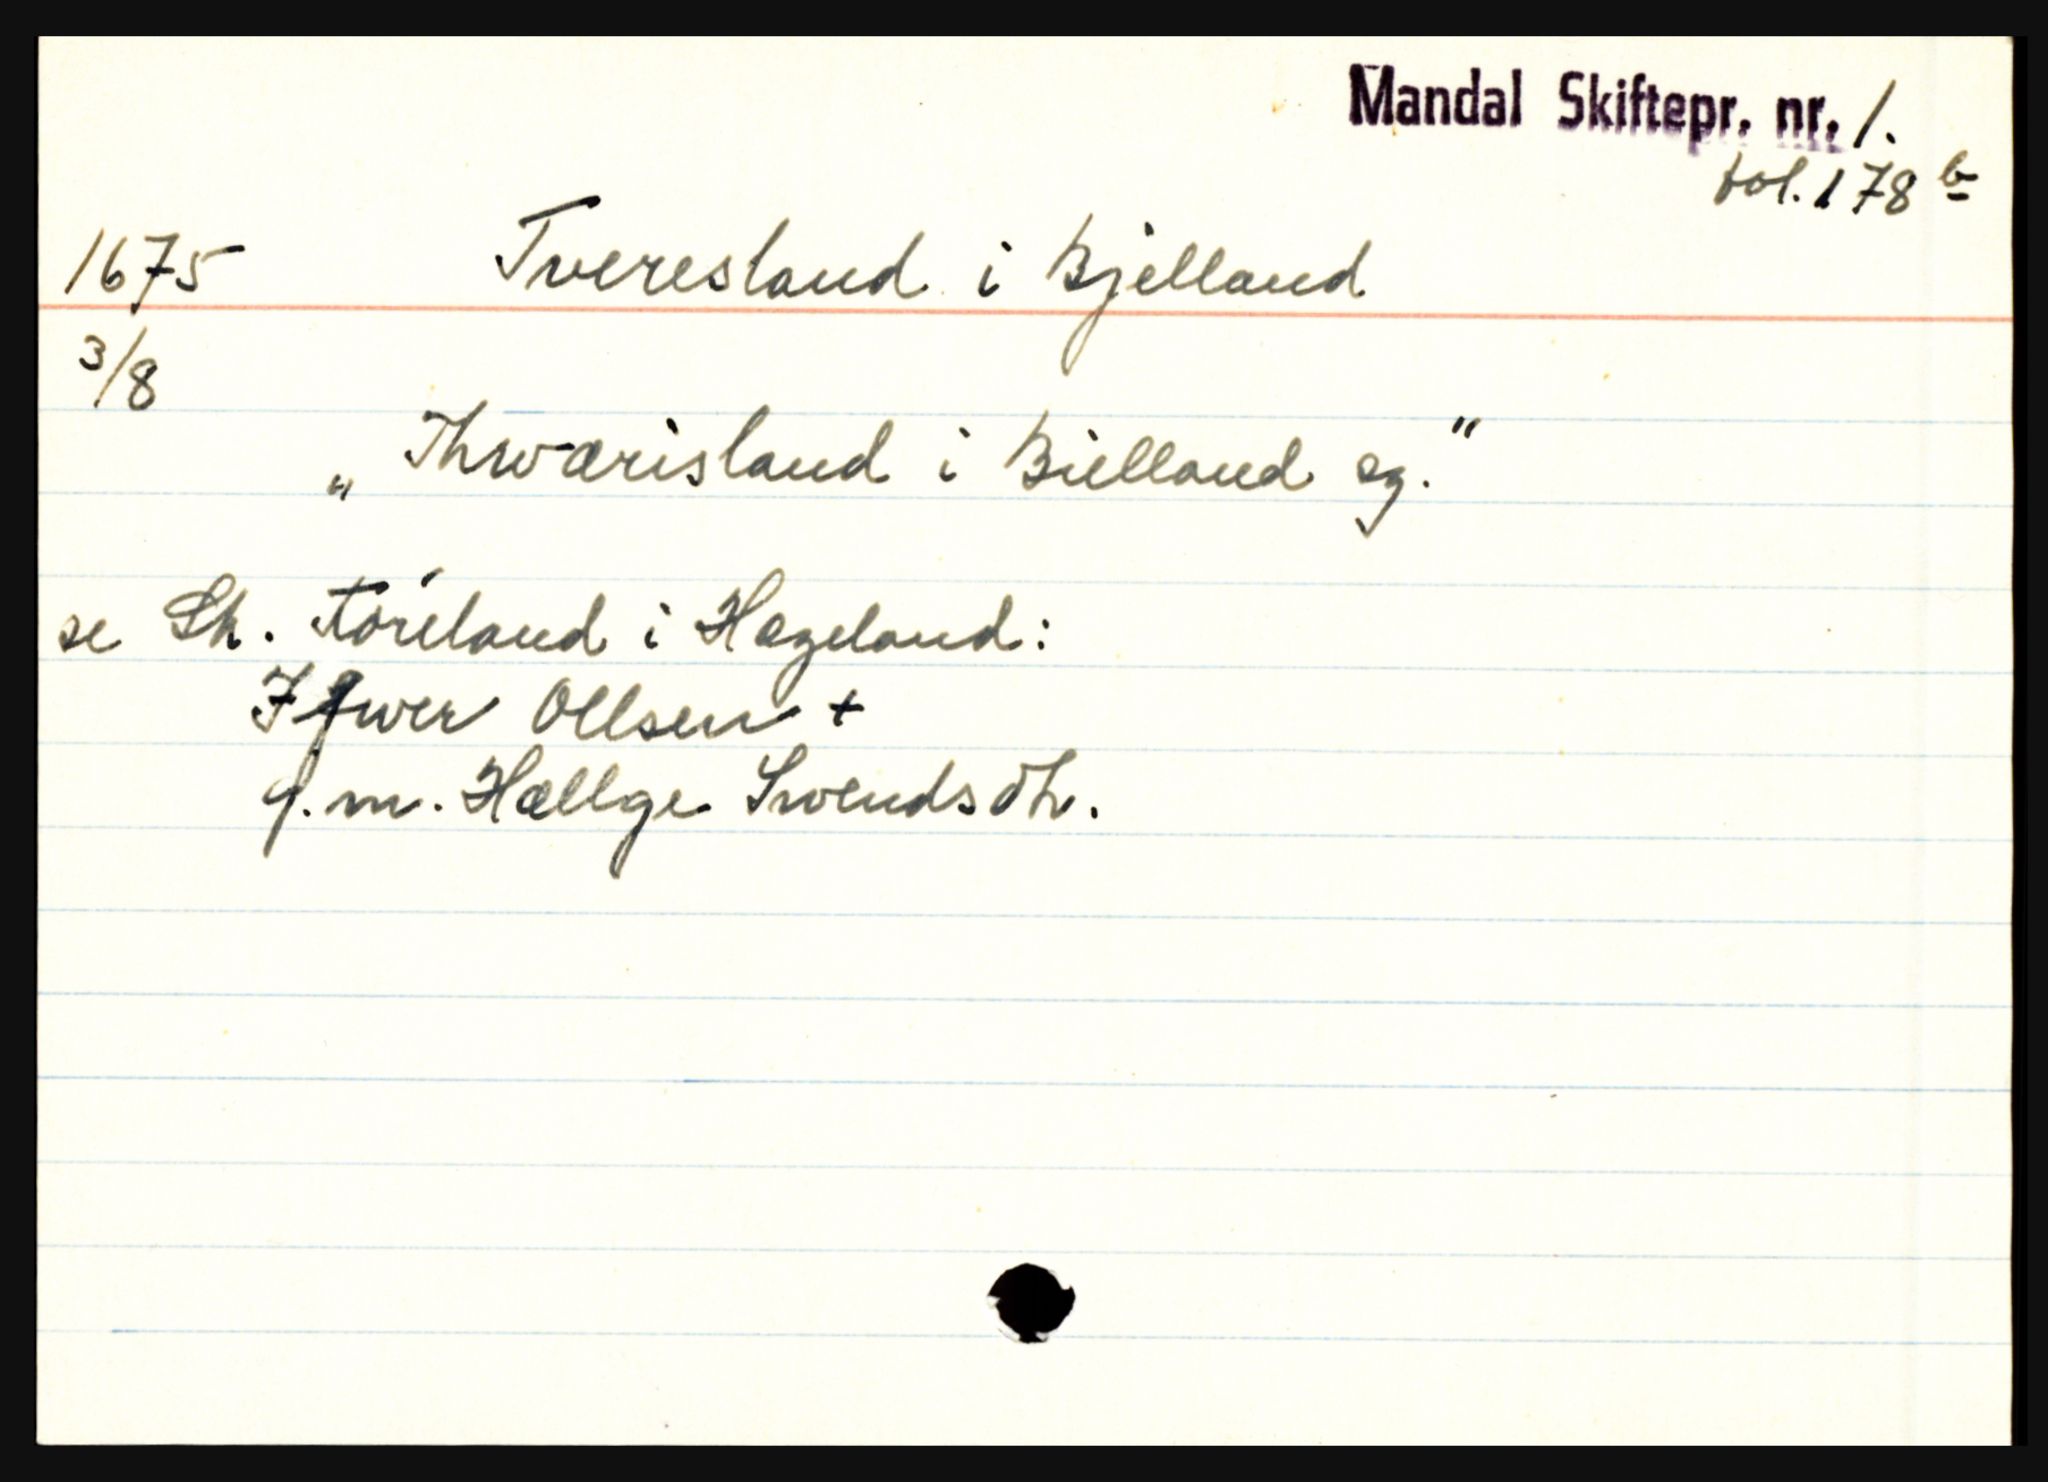 Mandal Skiftepr. nr. 1.
fol. 178 b
1675 Tveresland i Bjelland
3/8
„Thwærisland i Bielland sg."
se Sk. Foreland i Hægeland:
Ifwer Ollsen +
g.m. Hællge Swendsdh.